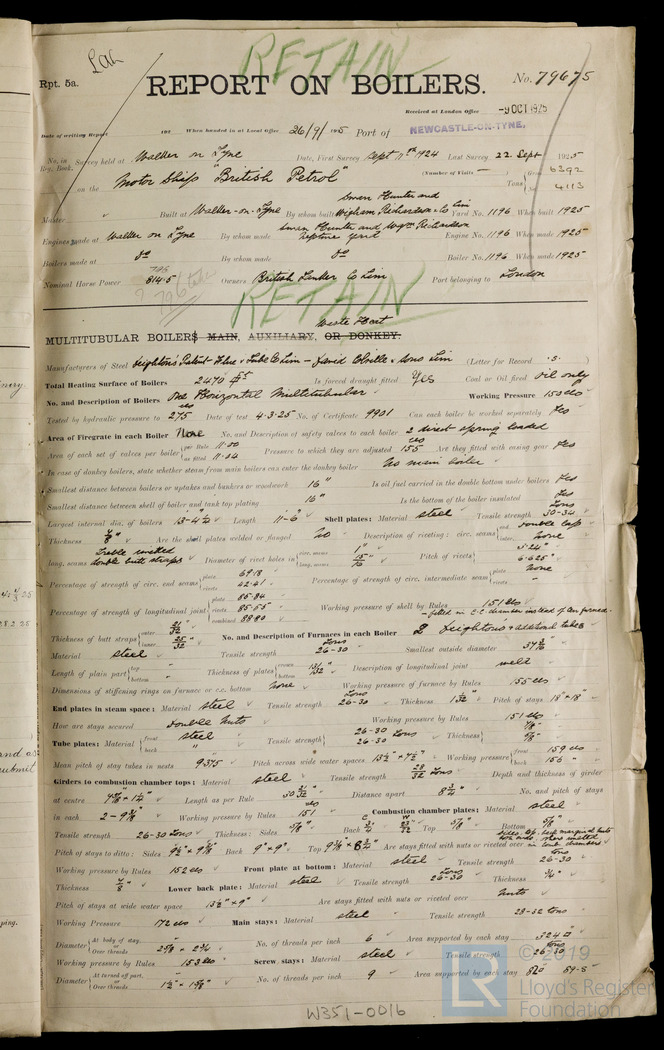 RETAIN
Rpt. 5a.
REPORT ON BOILERS.
No. 79675
Received at London Office -9 OCT 1925
Date of writing Report 192 When handed in at Local Office 26/9/1925 Port of NEWCASTLE-ON-TYNE.
No. in Reg. Book. Survey held at Walker on Tyne Date, First Survey Sept 11th 1924 Last Survey 22. Sept 1925
on the Motor Ship "British Petrol" (Number of Visits — ) Tons Gross 6392 Net 4113
Master " Built at Walker-on-Tyne By whom built Swan Hunter and Wigham Richardson & Co Lim Yard No. 1196 When built 1925
Engines made at Walker on Tyne By whom made Swan Hunter and Wigm Richardson Neptune Yard Engine No. 1196 When made 1925
Boilers made at Do By whom made Do Boiler No. 1196 When made 1925
Nominal Horse Power 814.5 Owners British Tanker Co Lim Port belonging to London
RETAIN
Waste Heat
MULTITUBULAR BOILERS MAIN, AUXILIARY, OR DONKEY.
Manufacturers of Steel Deighton's Patent Flue & Tube Co Lim - David Colville & Sons Lim (Letter for Record S. )
Total Heating Surface of Boilers 2470 Is forced draught fitted Yes Coal or Oil fired Oil only
No. and Description of Boilers One Horizontal Multitubular Working Pressure 150 lbs
Tested by hydraulic pressure to 275 Date of test 4.3.25 No. of Certificate 9901 Can each boiler be worked separately Yes
Area of Firegrate in each Boiler None No. and Description of safety valves to each boiler 2 direct spring loaded
Area of each set of valves per boiler per Rule 11.00 as fitted 11.34 Pressure to which they are adjusted 155 lbs Are they fitted with easing gear Yes
In case of donkey boilers, state whether steam from main boilers can enter the donkey boiler No main boiler
Smallest distance between boilers or uptakes and bunkers or woodwork 16" Is oil fuel carried in the double bottom under boilers Yes
Smallest distance between shell of boiler and tank top plating 16" Is the bottom of the boiler insulated Yes
Largest internal dia. of boilers Length 11-6 Shell plates: Material steel Tensile strength 30-34 Tons
Thickness 7/8" Are the shell plates welded or flanged No Description of riveting: circ. seams end double lap inter. None
long. seams treble riveted double butt straps Diameter of rivet holes in circ. seams 1" long. seams 15/16" Pitch of rivets 3.24" 6.625"
Percentage of strength of circ. end seams plate 69.18 rivets 42.41 Percentage of strength of circ. intermediate seam plate None rivets "
Percentage of strength of longitudinal joint plate 85.84 rivets 85.65 combined 88.90 Working pressure of shell by Rules 151 lbs
Thickness of butt straps outer 21/32 inner 25/32 No. and Description of Furnaces in each Boiler 2 Deighton's & additional tubes fitted in C.C. chamber instead of
Material steel Tensile strength 26-30 Tons Smallest outside diameter
Length of plain part top " bottom " Thickness of plates crown bottom 13/32" Description of longitudinal joint weld
Dimensions of stiffening rings on furnace or c.c. bottom None Working pressure of furnace by Rules 155 lbs
End plates in steam space: Material steel Tensile strength 26-30 Tons Thickness 1 1/32" Pitch of stays 18" x 18"
How are stays secured double nuts Working pressure by Rules 151 lbs
Tube plates: Material front steel back " Tensile strength 26-30 Tons 26-30 Tons Thickness 7/8" 5/8"
Mean pitch of stay tubes in nests 9.375 Pitch across wide water spaces 13 1/2" x 7 1/2" Working pressure front 159 lbs back 156 "
Girders to combustion chamber tops: Material steel Tensile strength 28/32 Tons Depth and thickness of girder
at centre Length as per Rule Distance apart 8 3/4" No. and pitch of stays
in each 2 - 9 3/8" Working pressure by Rules 151 lbs Combustion chamber plates: Material steel
Tensile strength 26-30 Tons Thickness: Sides 5/8" Back Top 5/8" Bottom 5/8"
Pitch of stays to ditto: Sides 9 1/2" x 9 3/8" Back 9" x 9" Top 9 3/8 x 8 3/4" Are stays fitted with nuts or riveted over
Working pressure by Rules 152 lbs Front plate at bottom: Material steel Tensile strength 26-30 Tons
Thickness 7/8" Lower back plate: Material steel Tensile strength 26-30 Tons Thickness
Pitch of stays at wide water space 13 1/2" x 9" Are stays fitted with nuts or riveted over Nuts
Working Pressure 172 lbs Main stays: Material steel Tensile strength 28-32 tons
Diameter At body of stay, Over threads 2 5/8 & 2 3/4 No. of threads per inch 6 Area supported by each stay 324
Working pressure by Rules 153 lbs Screw stays: Material steel Tensile strength 26-30 Tons
Diameter At turned off part, Over threads 1 1/2" & 1 5/8" No. of threads per inch 9 Area supported by each stay
W351-0016
© 2019
LR
Lloyd's Register
Foundation